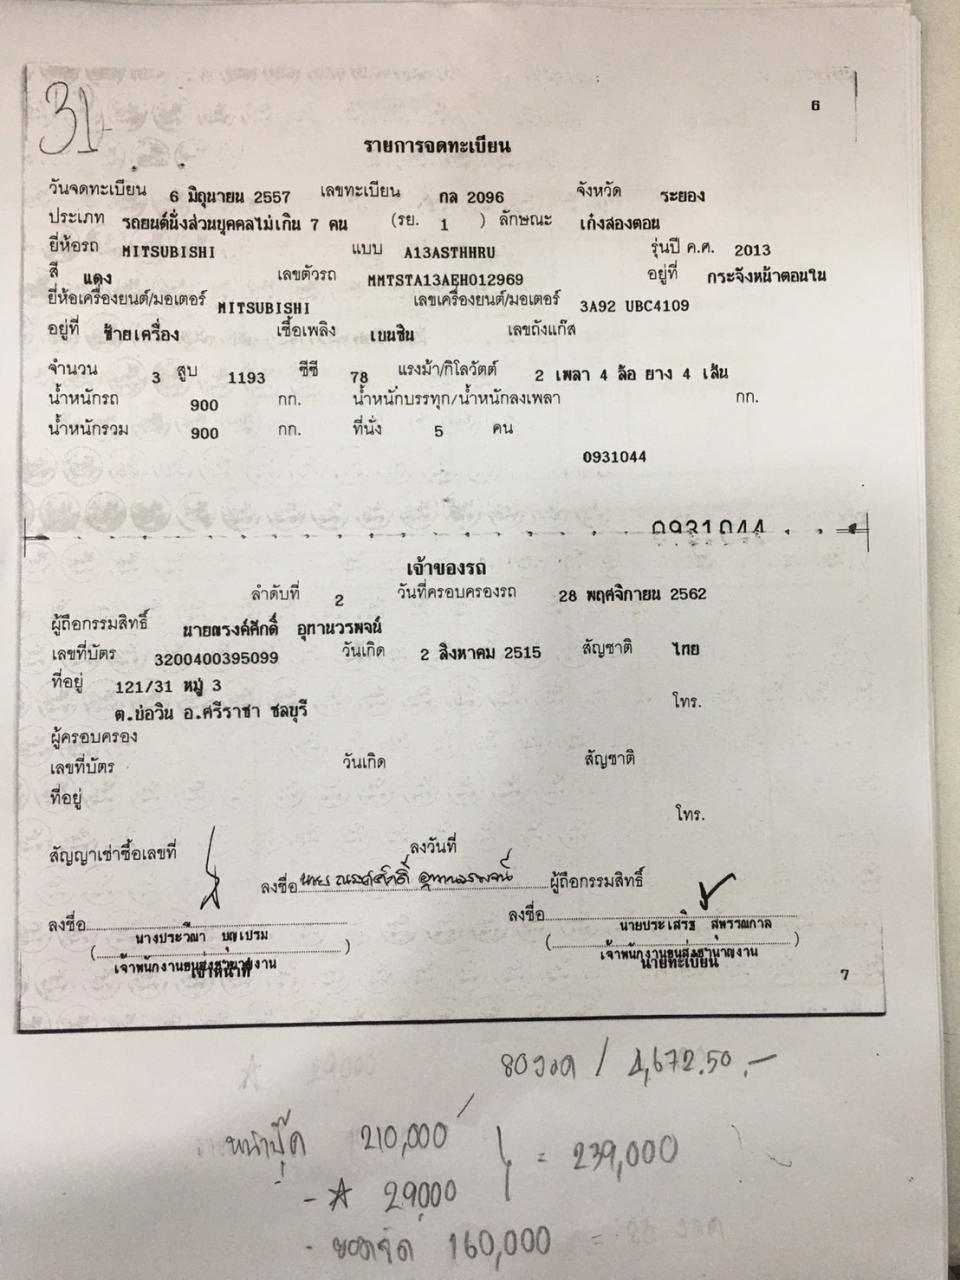 31-
6
รายการจดทะเบียน
วันจดทะเบียน 6 มิถุนายน 2557 เลขทะเบียน กล 2096 จังหวัด ระยอง
ประเภท รถยนต์นั่งส่วนบุคคลไม่เกิน 7 คน (รย. 1 ) ลักษณะ เก๋งสองตอน
ยี่ห้อรถ MITSUBISHI แบบ A13ASTHHRU รุ่นปี ค.ศ. 2013
สี แดง เลขตัวรถ MMTSTA13AEH012969 อยู่ที่ กระจังหน้าตอนใน
ยี่ห้อเครื่องยนต์/มอเตอร์ MITSUBISHI เลขเครื่องยนต์/มอเตอร์ 3A92 UBC4109
อยู่ที่ ซ้ายเครื่อง เชื้อเพลิง เบนซิน เลขถังแก๊ส
จำนวน 3 สูบ 1193 ซีซี 78 แรงม้า/กิโลวัตต์ 2 เพลา 4 ล้อ ยาง 4 เส้น
น้ำหนักรถ 900 กก. น้ำหนักบรรทุก/น้ำหนักลงเพลา กก.
น้ำหนักรวม 900 กก. ที่นั่ง 5 คน
0931044
0931044
เจ้าของรถ
ลำดับที่ 2 วันที่ครอบครองรถ 28 พฤศจิกายน 2562
ผู้ถือกรรมสิทธิ์ นายณรงค์ศักดิ์ อุทานวรพจน์
เลขที่บัตร 3200400395099 วันเกิด 2 สิงหาคม 2515 สัญชาติ ไทย
ที่อยู่ 121/31 หมู่ 3
ต.บ่อวิน อ.ศรีราชา ชลบุรี โทร.
ผู้ครอบครอง
เลขที่บัตร วันเกิด สัญชาติ
ที่อยู่
โทร.
สัญญาเช่าซื้อเลขที่ ลงวันที่
ลงชื่อ นาย ณรงค์ศักดิ์ อุทานวรพจน์ ผู้ถือกรรมสิทธิ์
ลงชื่อ ลงชื่อ
( นางประวีณา บุญเปรม ) ( นายประเสริฐ สุพรรณกาล )
เจ้าพนักงานขนส่งชำนาญงาน เจ้าพนักงานขนส่งชำนาญงาน
เจ้าหน้าที่ นายทะเบียน
7
80งวด / 4,672.50.-
หน้าปุ๊ค 210,000
- 29000 = 239,000
- ยอดจัด 160,000